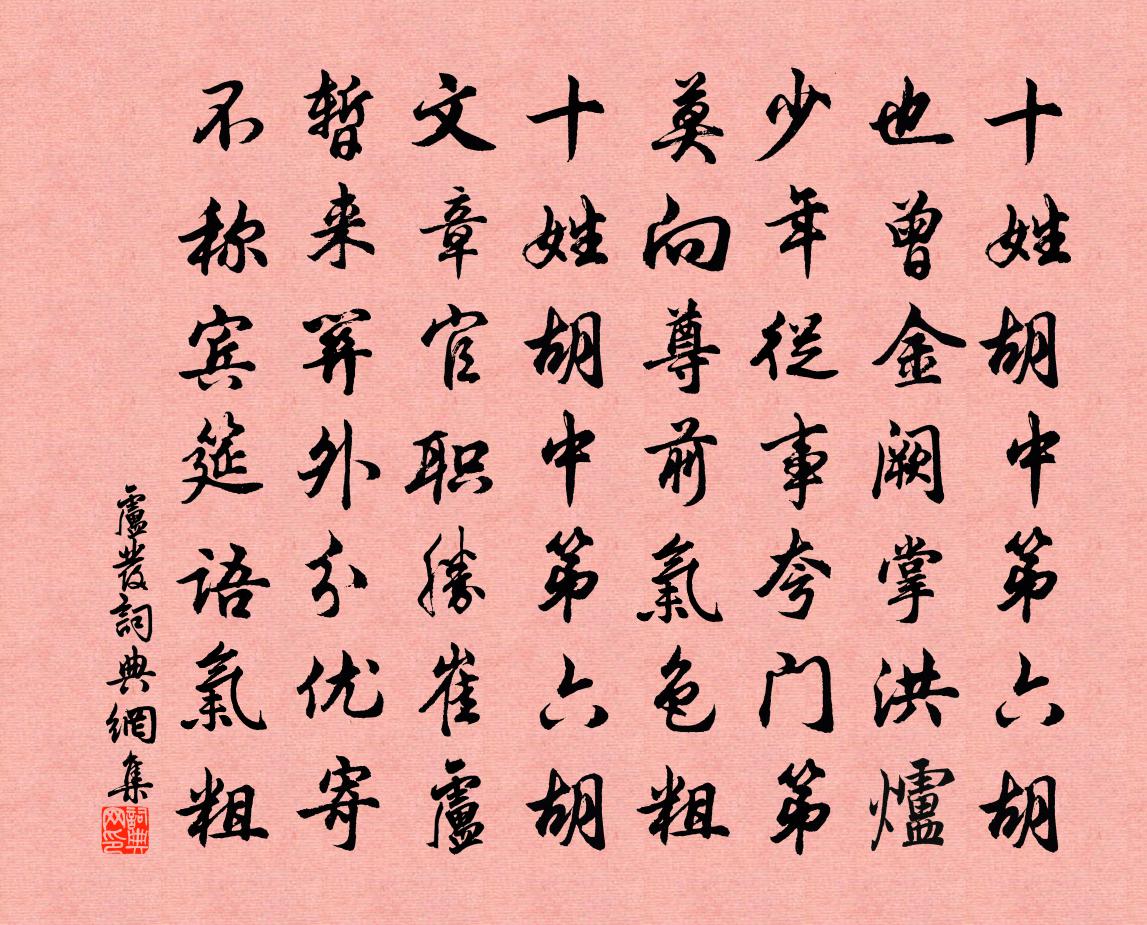 十姓胡中第六胡
也曾金阙掌洪爐
少年從事夸门第
莫向尊前氣色粗
十姓胡中第六胡
文章官职勝崔盧
暂来關外分优寄
不称宾筵語氣粗
盧發詞典網集
詞典网印